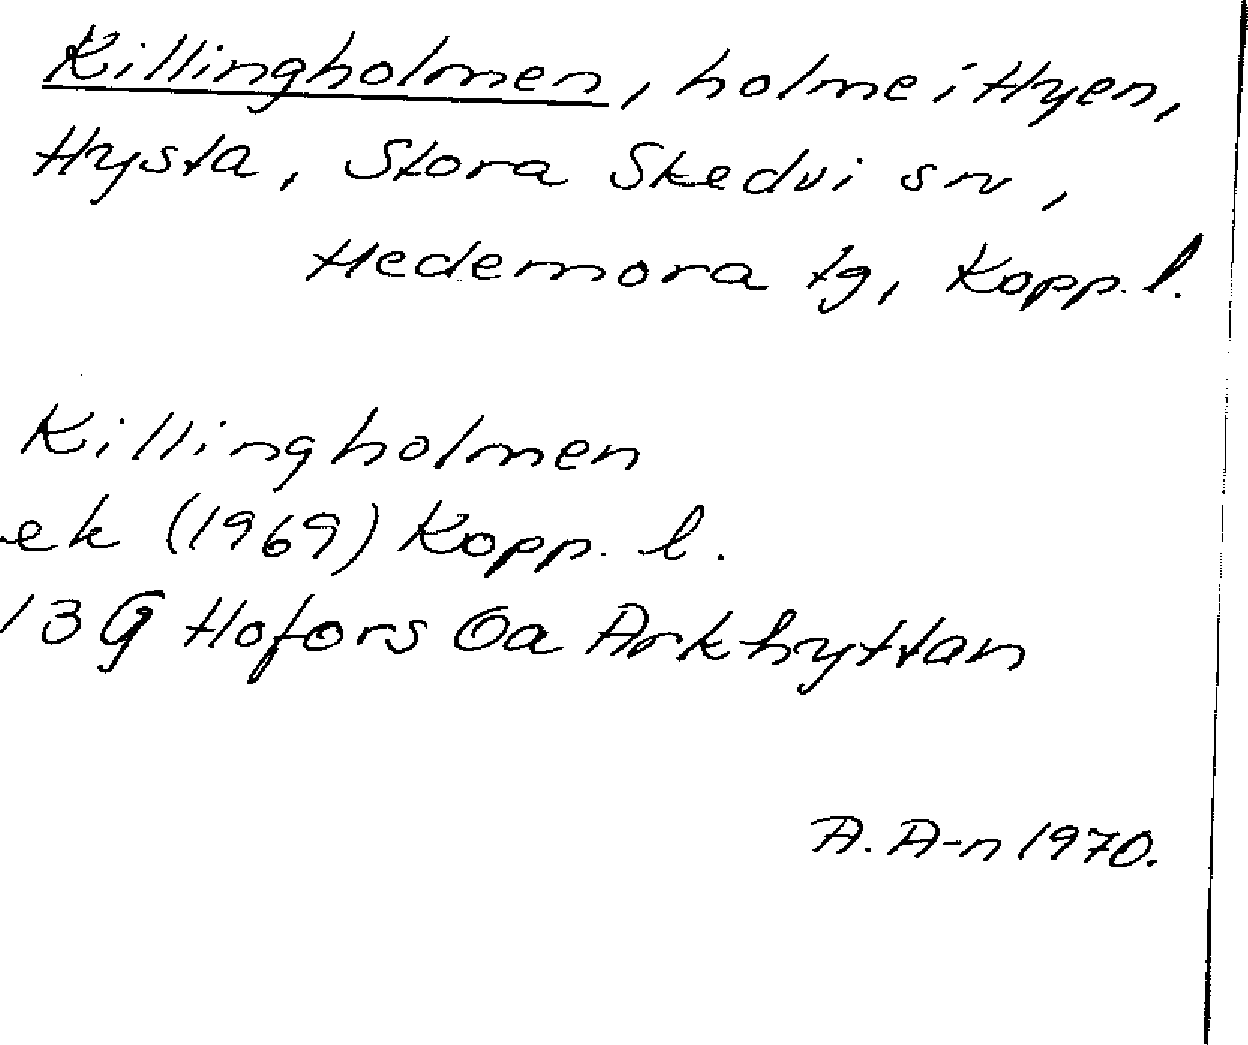 Killingholmen, holme i Hyen,
Hysta, Stora Skedvi sn,
Hedemora tg, Kopp. l.
Killingholmen
ek (1969) Kopp. l.
13 G Hofors 0a Arkhyttan
A. A-n 1970.